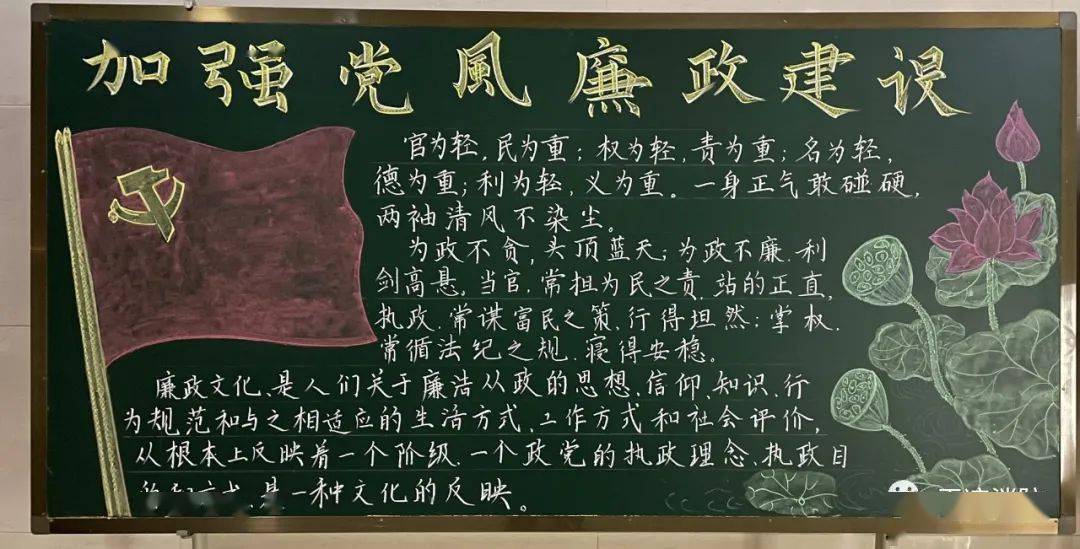 加强党風廉政建设
官为轻,民为重;权为轻,责为重;名为轻,
德为重;利为轻,义为重。一身正气敢碰硬,
两袖清风不染尘。
为政不贪,头顶蓝天;为政不廉.利
剑高悬。当官.常担为民之责.站的正直,
执政.常谋富民之策.行得坦然;掌权.
常循法纪之规.寝得安稳。
廉政文化、是人们关于廉洁从政的思想、信仰、知识、行
为规范和与之相适应的生活方式、工作方式和社会评价,
从根本上反映着一个阶级.一个政党的执政理念、执政目
是一种文化的反映。